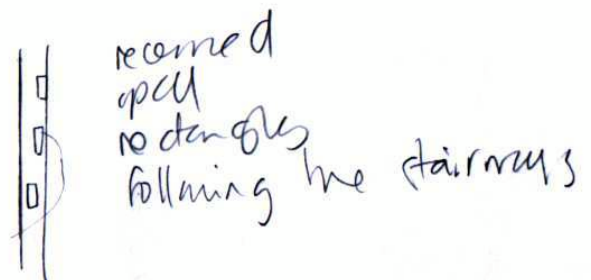 open
rectangles
following the stairways